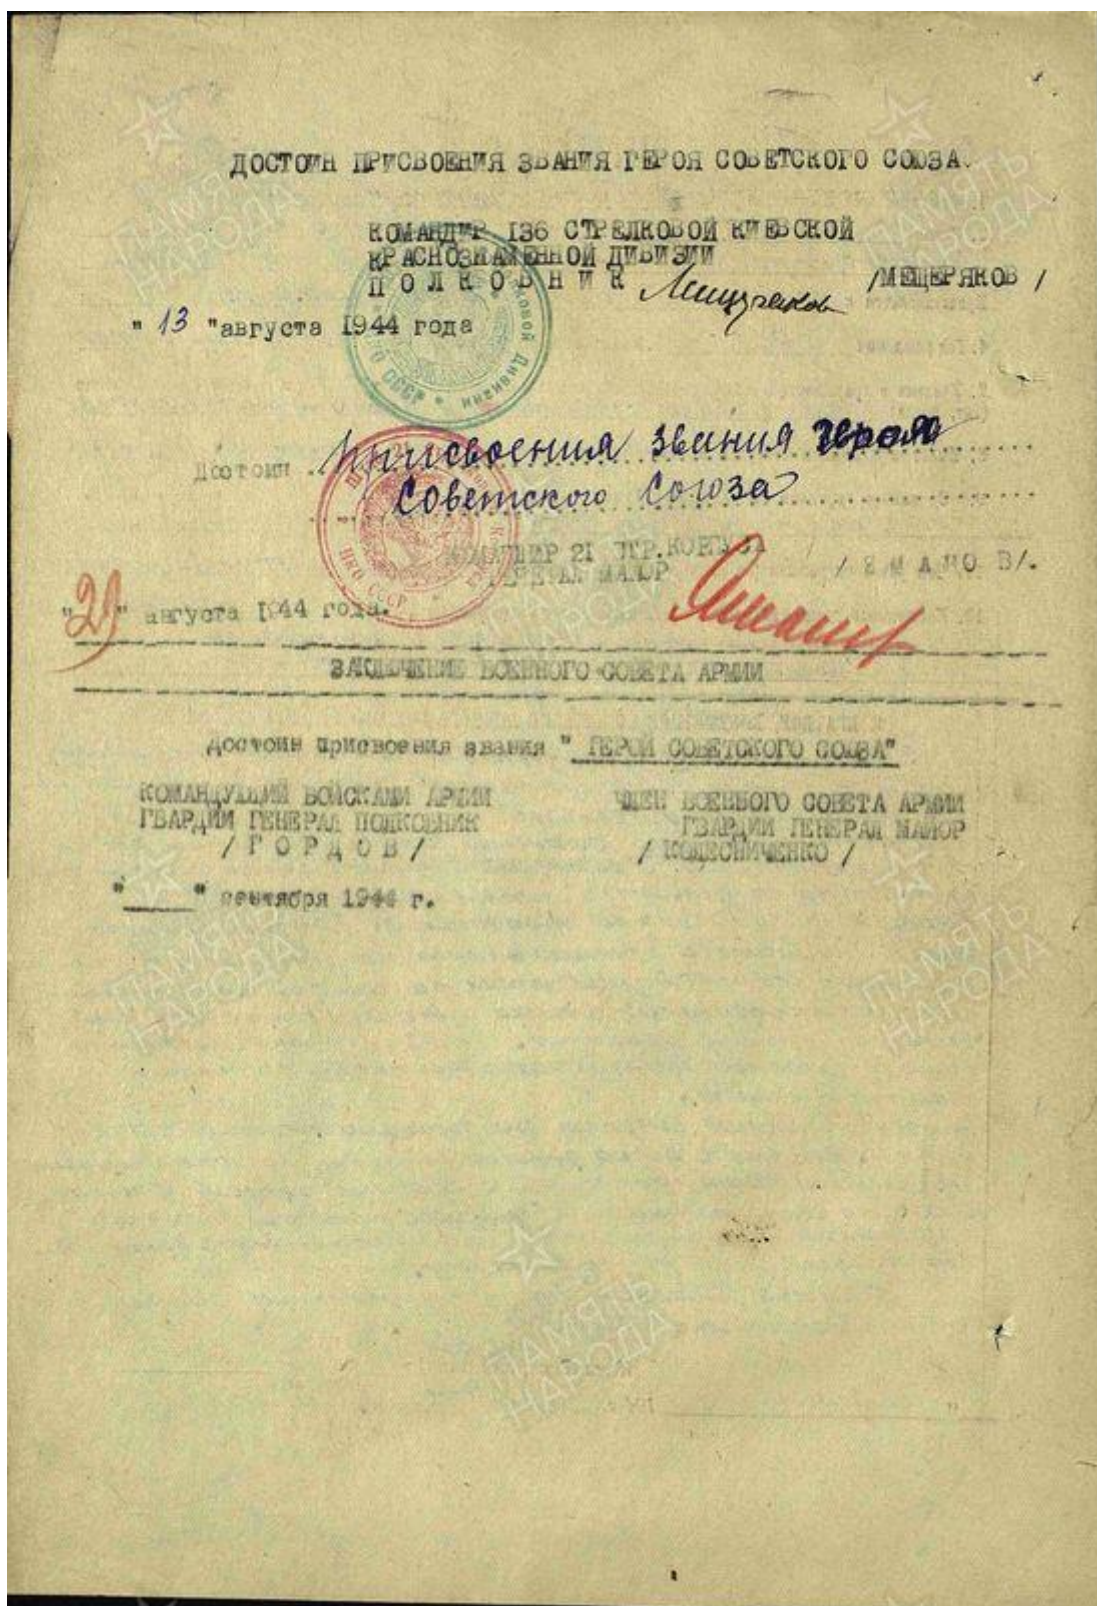 ДОСТОИН ПРИСВОЕНИЯ ЗВАНИЯ ГЕРОЯ СОВЕТСКОГО СОЮЗА.
КОМАНДИР 136 СТРЕЛКОВОЙ КИЕВСКОЙ
КРАСНОЗНАМЕННОЙ ДИВИЗИИ
ПОЛКОВНИК /МЕЩЕРЯКОВ/
"13" августа 1944 года
Достоин присвоения звания героя
Советского Союза
КОМАНДИР 21 СТР.КОРПУСА
ГЕНЕРАЛ МАЙОР /ЯМАНОВ/.
"29" августа 1944 года.
ЗАКЛЮЧЕНИЕ ВОЕННОГО СОВЕТА АРМИИ
достоин присвоения звания " ГЕРОЙ СОВЕТСКОГО СОЮЗА"
КОМАНДУЮЩИЙ ВОЙСКАМИ АРМИИ ЧЛЕН ВОЕННОГО СОВЕТА АРМИИ
ГВАРДИИ ГЕНЕРАЛ ПОЛКОВНИК ГВАРДИИ ГЕНЕРАЛ МАЙОР
/ГОРДОВ/ / КОЛЕСНИЧЕНКО /
"____" сентября 1944 г.
ПАМЯТЬ
НАРОДА